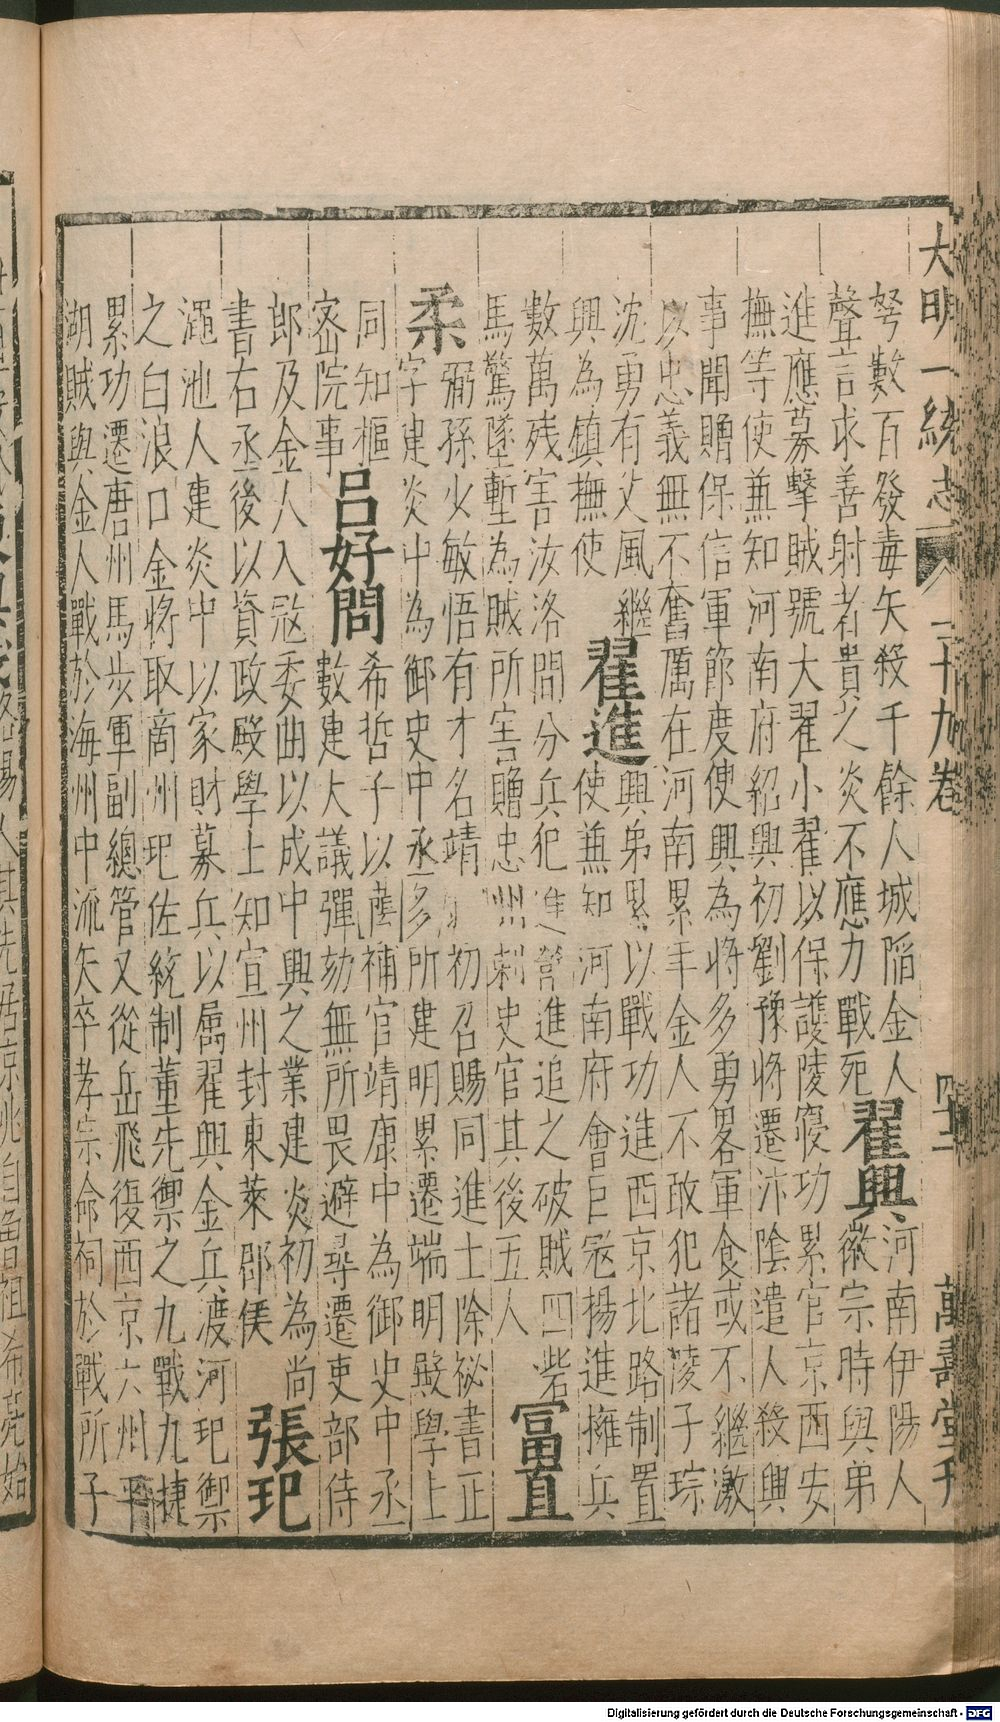 大明一統志 二十九卷 四十二 萬壽堂刊
弩數百發毒矢殺千餘人城陷金人
聲言求善射者貴之炎不應力戰死
翟興
河南伊陽人
徽宗時與弟
進應募擊賊號大翟小翟以保護陵寢功累官京西安
撫等使兼知河南府紹興初劉豫將遷汴陰遣人殺興
事聞贈保信軍節度使興為將多勇畧軍食或不繼激
以忠義無不奮厲在河南累年金人不敢犯諸陵子琮
沈勇有父風繼
興為鎮撫使
翟進
興弟累以戰功進西京北路制置
使兼知河南府會巨寇揚進擁兵
數萬殘害汝洛間分兵犯進營進追之破賊四砦
馬驚墜塹為賊所害贈忠州刺史官其後五人
富直
柔
弼孫少敏悟有才名靖初召賜同進士除祕書正
字建炎中為御史中丞多所建明累遷端明殿學士
同知樞
密院事
呂好問
希哲子以廕補官靖康中為御史中丞
數建大議彈劾無所畏避尋遷吏部侍
郎及金人入寇委曲以成中興之業建炎初為尚
書右丞後以資政殿學士知宣州封東萊郡侯
張玘
澠池人建炎中以家財募兵以屬翟興金兵渡河玘禦
之白浪口金將取商州玘佐統制董先禦之九戰九捷
累功遷唐州馬步軍副總管又從岳飛復西京六州平
湖賊與金人戰於海州中流矢卒孝宗命祠於戰所子
洛陽人其先居京兆自曾祖希亮始
Digitalisierung gefördert durch die Deutsche Forschungsgemeinschaft - DFG